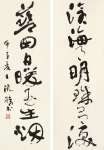 滄海月明珠有淚
藍田日暖玉生煙